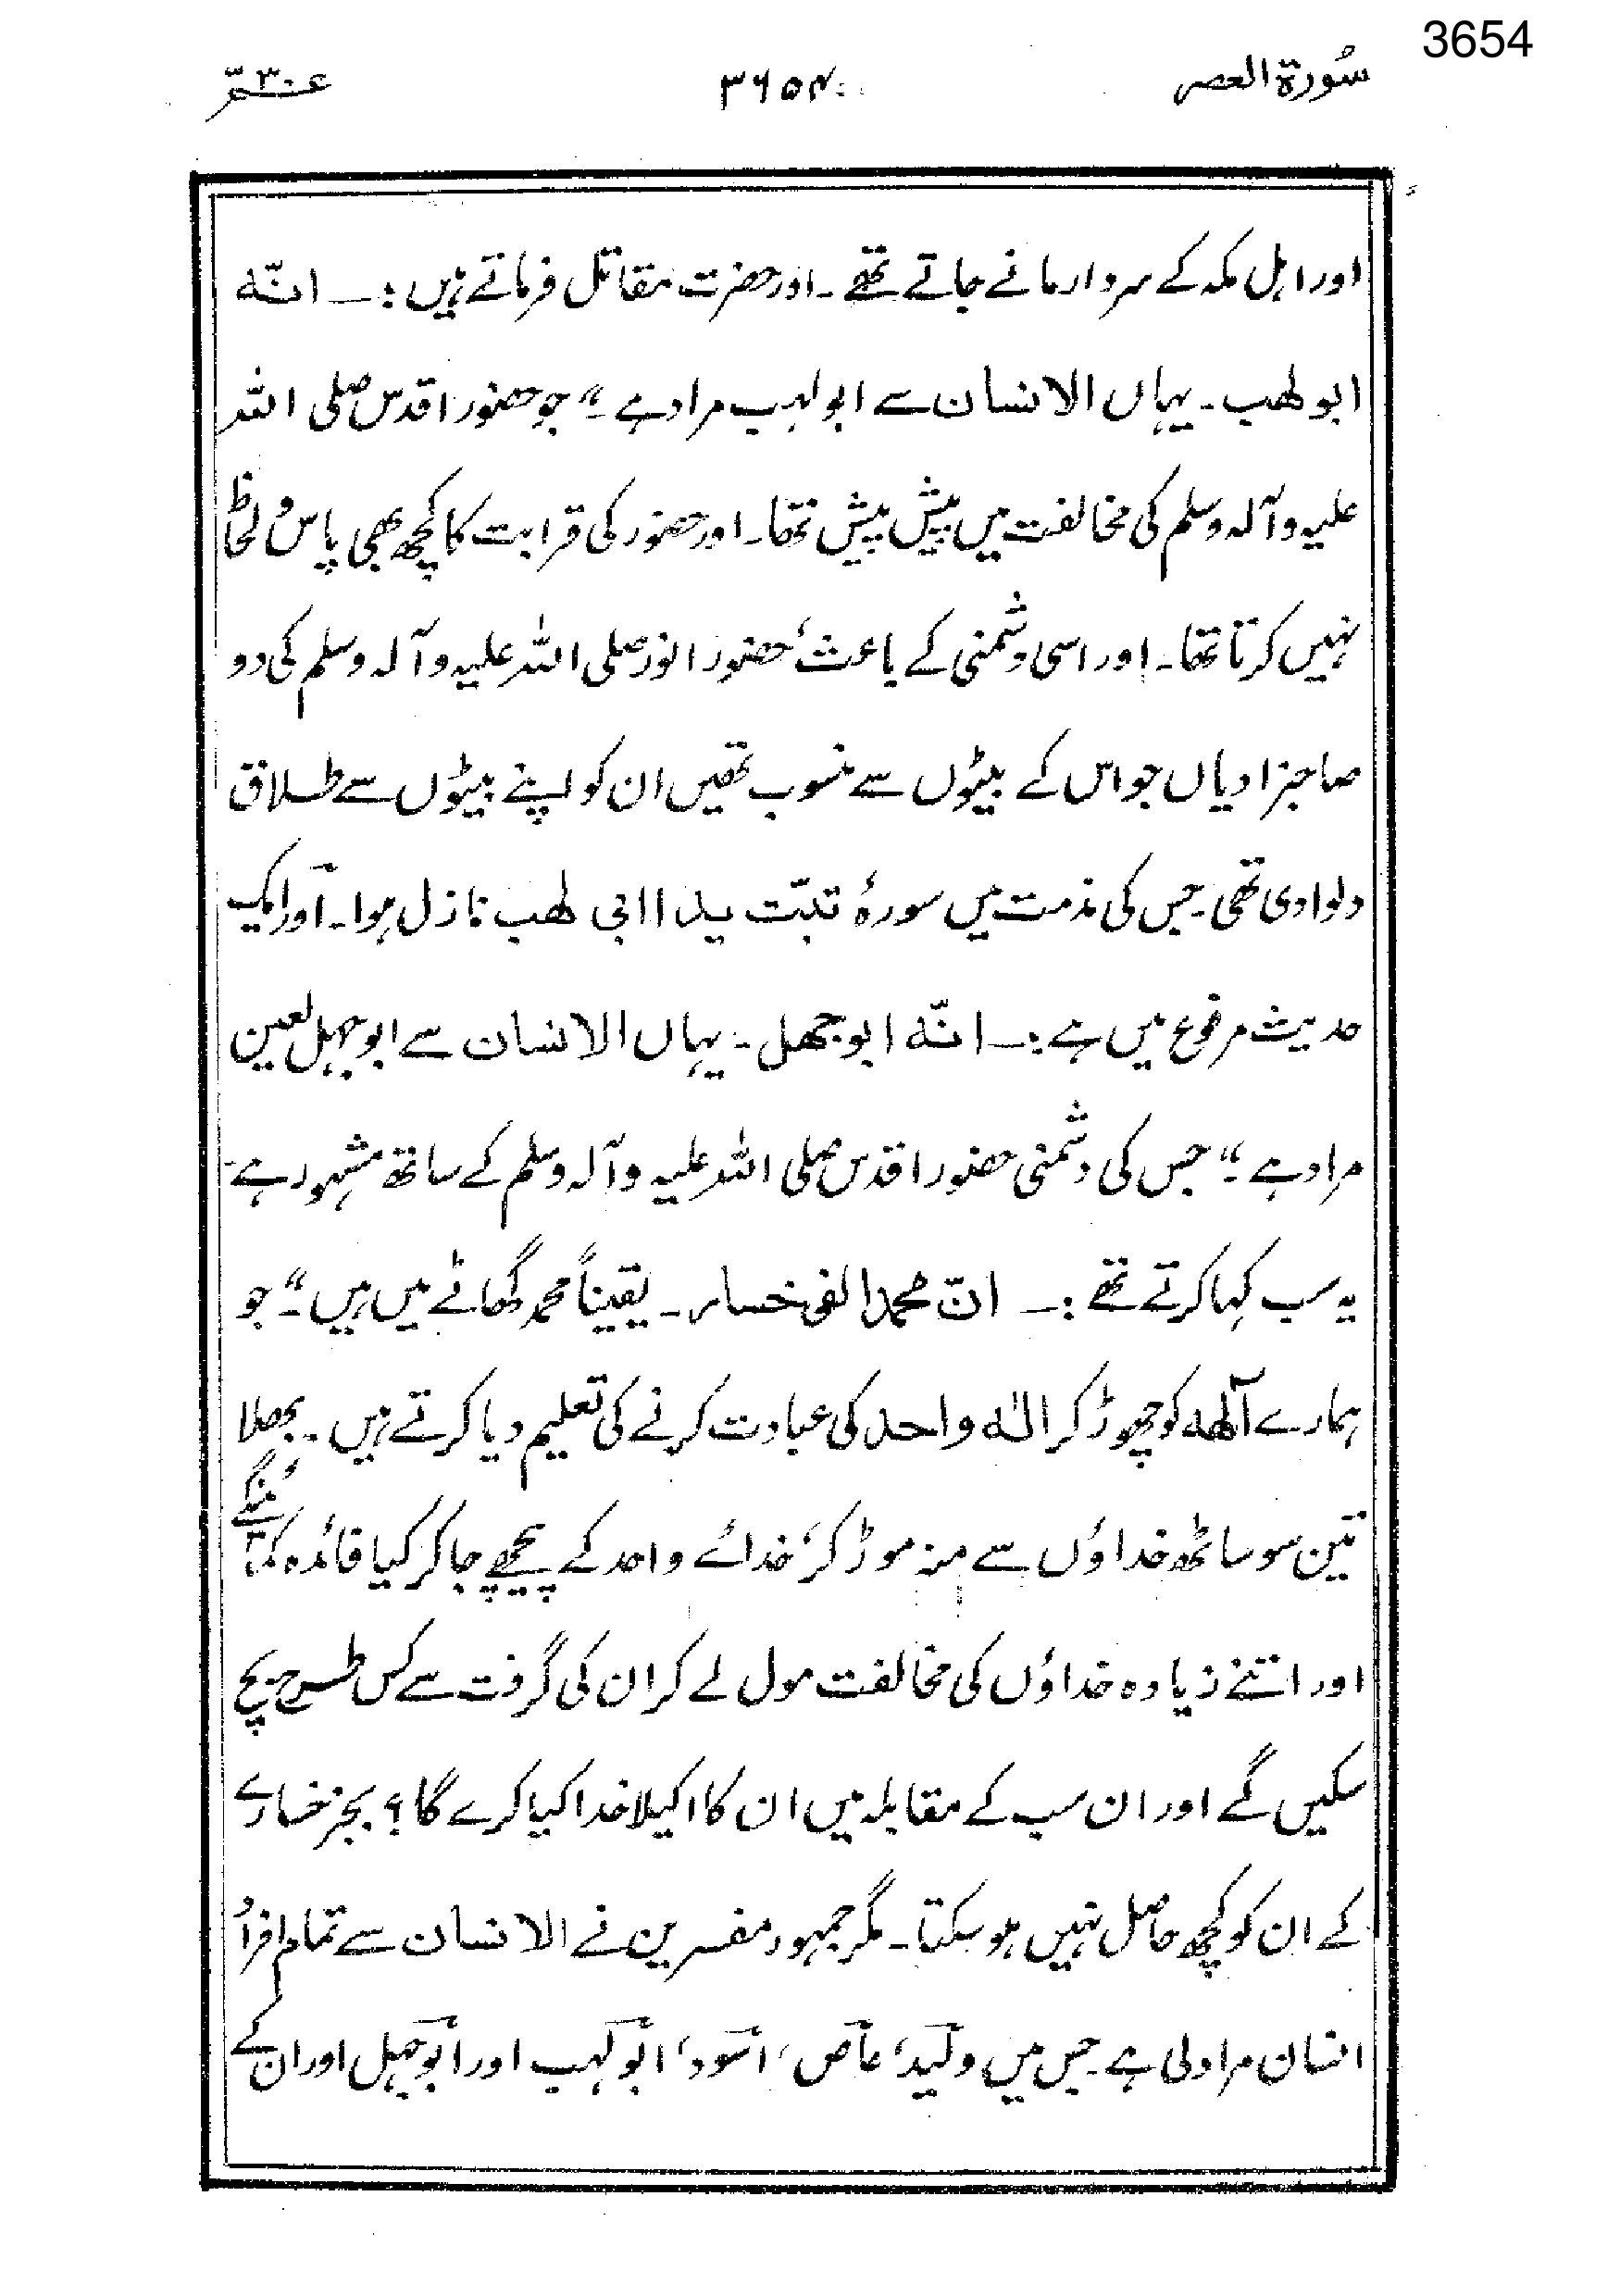 3654
سُورۃ العصر
۳۶۵۴
عمّ ۳۰
اور اہل مکہ کے سردار مانے جاتے تھے۔ اور حضرت مقاتل فرماتے ہیں :ـــ انّہ
ابو لھب۔ یہاں الانسان سے ابولہب مراد ہے ۔“ جو حضور اقدس صلی اللہ
علیہ وآلہ وسلم کی مخالفت میں پیش پیش تھا۔ اور حضور کی قرابت کا کچھ بھی پاس و لحاظ
نہیں کرتا تھا۔ اور اسی دشمنی کے باعث، حضور انور صلی اللہ علیہ وآلہ وسلم کی دو
صاحبزادیاں جو اس کے بیٹوں سے منسوب تھیں ان کو اپنے بیٹوں سے طلاق
دلوادی تھی۔ جس کی مذمت میں سورۂ تبّت یدا ابی لھب نازل ہوا۔ اور ایک
حدیث مرفوع میں ہے :ـــ انّہ ابوجھل۔ یہاں الانسان سے ابوجہل لعین
مراد ہے ۔“ جس کی دشمنی حضور اقدس صلی اللہ علیہ وآلہ وسلم کے ساتھ مشہور ہے۔
یہ سب کہا کرتے تھے :ـــ انّ محمدا لفی خسار۔ یقیناً محمد گھاٹے میں ہیں ۔“ جو
ہمارے آلھہ کو چھوڑ کر الٰہ واحد کی عبادت کرنے کی تعلیم دیا کرتے ہیں۔ بھلا
تین سو ساٹھ خداؤں سے منہ موڑ کر، خدائے واحد کے پیچھے جا کر کیا فائدہ کمائینگے
اور اتنے زیادہ خداؤں کی مخالفت مول لے کر ان کی گرفت سے کس طرح بچ
سکیں گے اور ان سب کے مقابلہ میں ان کا اکیلا خدا کیا کرے گا؟ بجز خسارے
کے ان کو کچھ حاصل نہیں ہوسکتا۔ مگر جمہور مفسرین نے الانسان سے تمام افراد
انسان مراد لی ہے۔ جس میں ولید، عاص، اسود، ابولہب اور ابوجہل اور ان کے